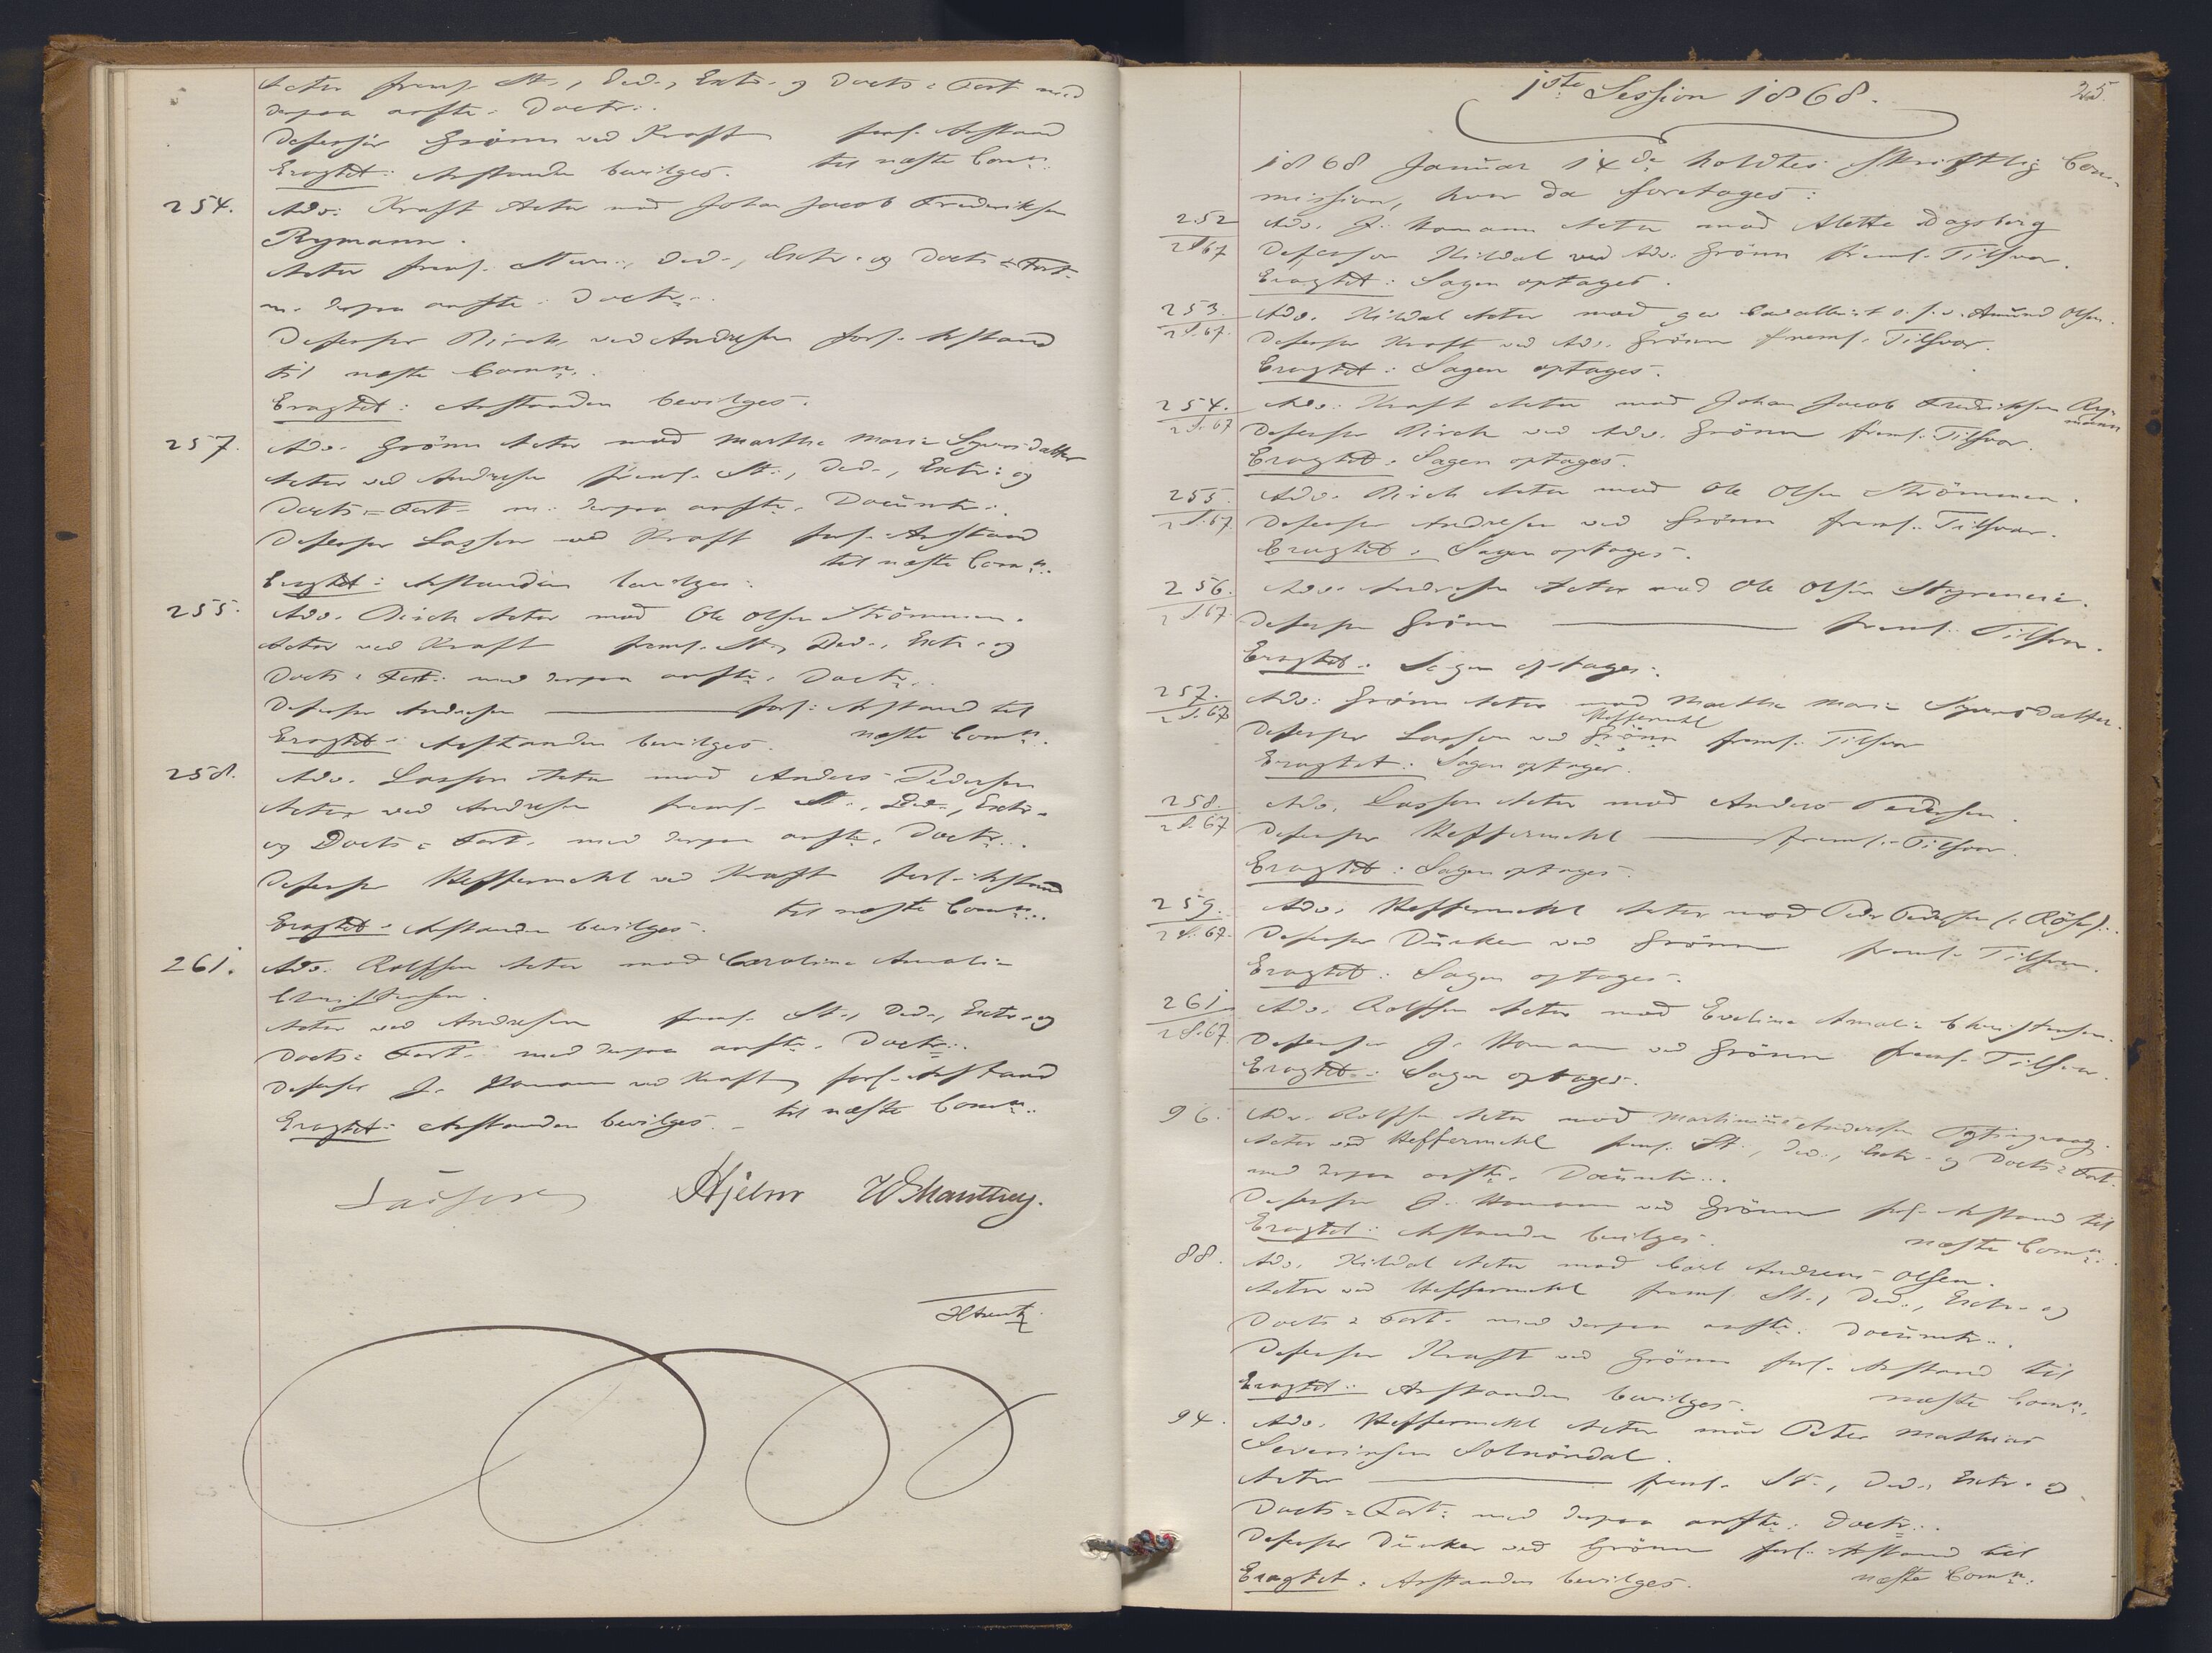 Actor freml. St., Ded., Extr. og Docts = Fort med
derpaa anfte. Doctr.
Defensor Grönn ved Kraft forl. Anstand
til næste Comn.
Eragtet: Anstanden bevilges.
254. Adv. Kraft Actor mod Johan Jacob Frederiksen
Rymann.
Actor freml. Stevn., Ded., Extr. og Docts = Fort.
m. derpaa anfte. Doctr.
Defensor Birch ved Andresen forl. Anstand
til næste Comn.
Eragtet: Anstanden bevilges.
257. Adv. Grönn Actor mod Marthe Marie Syversdatter
Actor ved Andresen freml. St., Ded., Extr. og
Docts = Fort. m. derpaa anfte. Documtr.
Defensor Lasson ved Kraft forl. Anstand
til næste Comn.
Eragtet: Anstanden bevilges.
255. Adv. Birch Actor mod Ole Olsen Strömmen.
Actor ved Kraft freml. St., Ded., Extr. og
Docts = Fort. med derpaa anfte. Doctr.
Defensor Andresen — forl. Anstand til
næste Comn.
Eragtet: Anstanden bevilges.
258. Adv. Lasson Actor mod Anders Pedersen
Actor ved Andresen freml. St., Ded., Extr.
og Docts = Fort. med derpaa anfte. Doctr.
Defensor Heffermehl ved Kraft forl. Anstand
til næste Comn.
Eragtet: Anstanden bevilges.
261. Adv. Rolffsen Actor mod Caroline Amalie
Christensen.
Actor ved Andresen freml. St., Ded., Extr. og
Docts = Fort. med derpaa anfte. Doctr.
Defensor J. Homann ved Kraft forl. Anstand
til næste Comn.
Eragtet: Anstanden bevilges.
Lasson Hjelm
25.
1ste Session 1868.
1868 Januar 14de holdtes skriftlig Com-
mission, hvor da foretages:
252 / 2 S. 67 Adv. J. Homann Actor mod Alette Dagsberg
Defensor Kildal ved Adv. Grönn freml. Tilsvar.
Eragtet: Sagen optages.
253. / 2 S. 67. Adv. Kildal Actor mod Amund Olsen.
Defensor Kraft ved Adv. Grönn freml. Tilsvar.
Eragtet: Sagen optages.
254. / 2 S. 67 Adv. Kraft Actor mod Johan Jacob Fredriksen Ry-
mann
Defensor Birch ved Adv. Grönn freml. Tilsvar.
Eragtet: Sagen optages.
255. / 2 S. 67 Adv. Birch Actor mod Ole Olsen Strömmen.
Defensor Andresen ved Grönn freml. Tilsvar.
Eragtet: Sagen optages.
256. / 2 S. 67. Adv. Andresen Actor mod Ole Olsen
Defensor Grönn — freml. Tilsvar.
Eragtet: Sagen optages.
257. / 2 S. 67 Adv. Grönn Actor mod Marthe Marie Syversdatter.
Heffermehl
Defensor Lasson ved Grönn freml. Tilsvar
Eragtet: Sagen optages.
258. / 2 S. 67 Adv. Lasson Actor mod Anders Pedersen.
Defensor Heffermehl — freml. Tilsvar.
Eragtet: Sagen optages.
259. / 2 S. 67. Adv. Heffermehl Actor mod Peder Pedersen
Defensor Dunker ved Grönn freml. Tilsvar.
Eragtet: Sagen optages.
261 / 2 S. 67 Adv. Rolffsen Actor mod Eveline Amalie Christensen.
Defensor J. Homann ved Grönn freml. Tilsvar.
Eragtet: Sagen optages.
96. Adv. Rolffsen Actor mod Martinius Andersen
Actor ved Heffermehl freml. St., Ded., Extr. og Docts = Fort.
med derpaa anfte. Documtr.
Defensor J. Homann ved Grönn forl. Anstand til
næste Comn.
Eragtet: Anstanden bevilges.
88. Adv. Kildal Actor mod Carl Andreas Olsen.
Actor ved Heffermehl freml. St., Ded., Extr. og
Docts = Fort. med derpaa anfte. Documtr.
Defensor Kraft ved Grönn forl. Anstand til
næste Comn.
Eragtet: Anstanden bevilges.
94. Adv. Heffermehl Actor mod Peter Mathias
Severinsen Solnördal.
Actor — freml. St., Ded., Extr. og
Docts = Fort. med derpaa anfte. Doctr.
Defensor Dunker ved Grönn forl. Anstand til
næste Comn.
Eragtet: Anstanden bevilges.